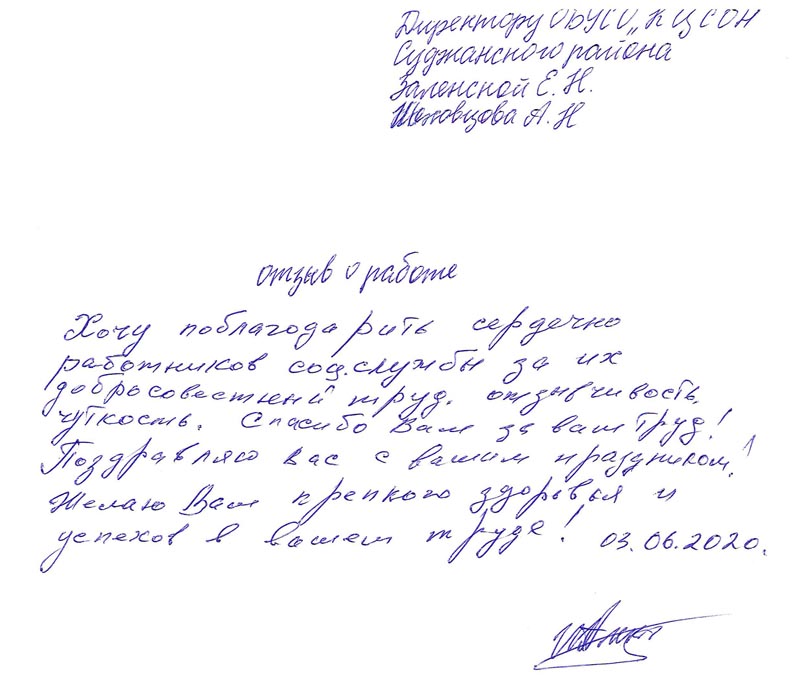 Директору ОБУСО „КЦСОН
Суджанского района
Заленской Е. Н.
А. Н
отзыв о работе
Хочу поблагодарить сердечно
работников соц.службы за их
добросовестный труд. отзывчивость,
чуткость. Спасибо Вам за ваш труд!
Поздравляю вас с вашим праздником!
Желаю Вам крепкого здоровья и
успехов в вашем труде! 03.06.2020.